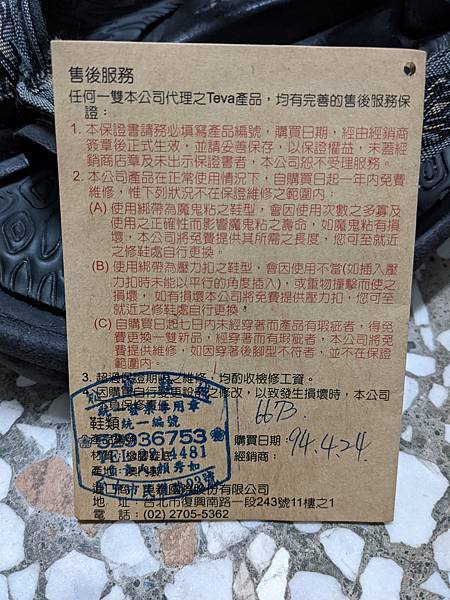 售後服務
任何一雙本公司代理之Teva產品，均有完善的售後服務保
證：
1. 本保證書請務必填寫產品編號，購買日期，經由經銷商
簽章後正式生效，並請妥善保存，以保證權益，未蓋經
銷商店章及未出示保證書者，本公司恕不受理服務。
2. 本公司產品在正常使用情況下，自購買日起一年內免費
維修，惟下列狀況不在保證維修之範圍內：
(A) 使用綁帶為魔鬼粘之鞋型，會因使用次數之多寡及
使用之正確性而影響魔鬼粘之壽命，如魔鬼粘有損
壞，本公司將免費提供其所需之長度，您可至就近
之修鞋處自行更換。
(B) 使用綁帶為壓力扣之鞋型，會因使用不當(如插入壓
力扣時未能以平行的角度插入)，或重物撞擊而使之
損壞，如有損壞本公司將免費提供壓力扣，您可至
就近之修鞋處自行更換，
(C) 自購買日起七日內未經穿著而產品有瑕疵者，得免
費更換一雙新品，經穿著而有瑕疵者，本公司將免
費提供維修，如因穿著後腳型不符者，並不在保證
範圍內。
3. 超過保證期限之維修，均酌收檢修工資。
因購買自行變更設計之修改，以致發生損壞時，本公司
鞋類
統一編號
6673
936753
購買日期：94.4.24.
4481
經銷商：
產地：
股份有限公司
地　址：台北市復興南路一段243號11樓之1
電　話：(02) 2705-5362